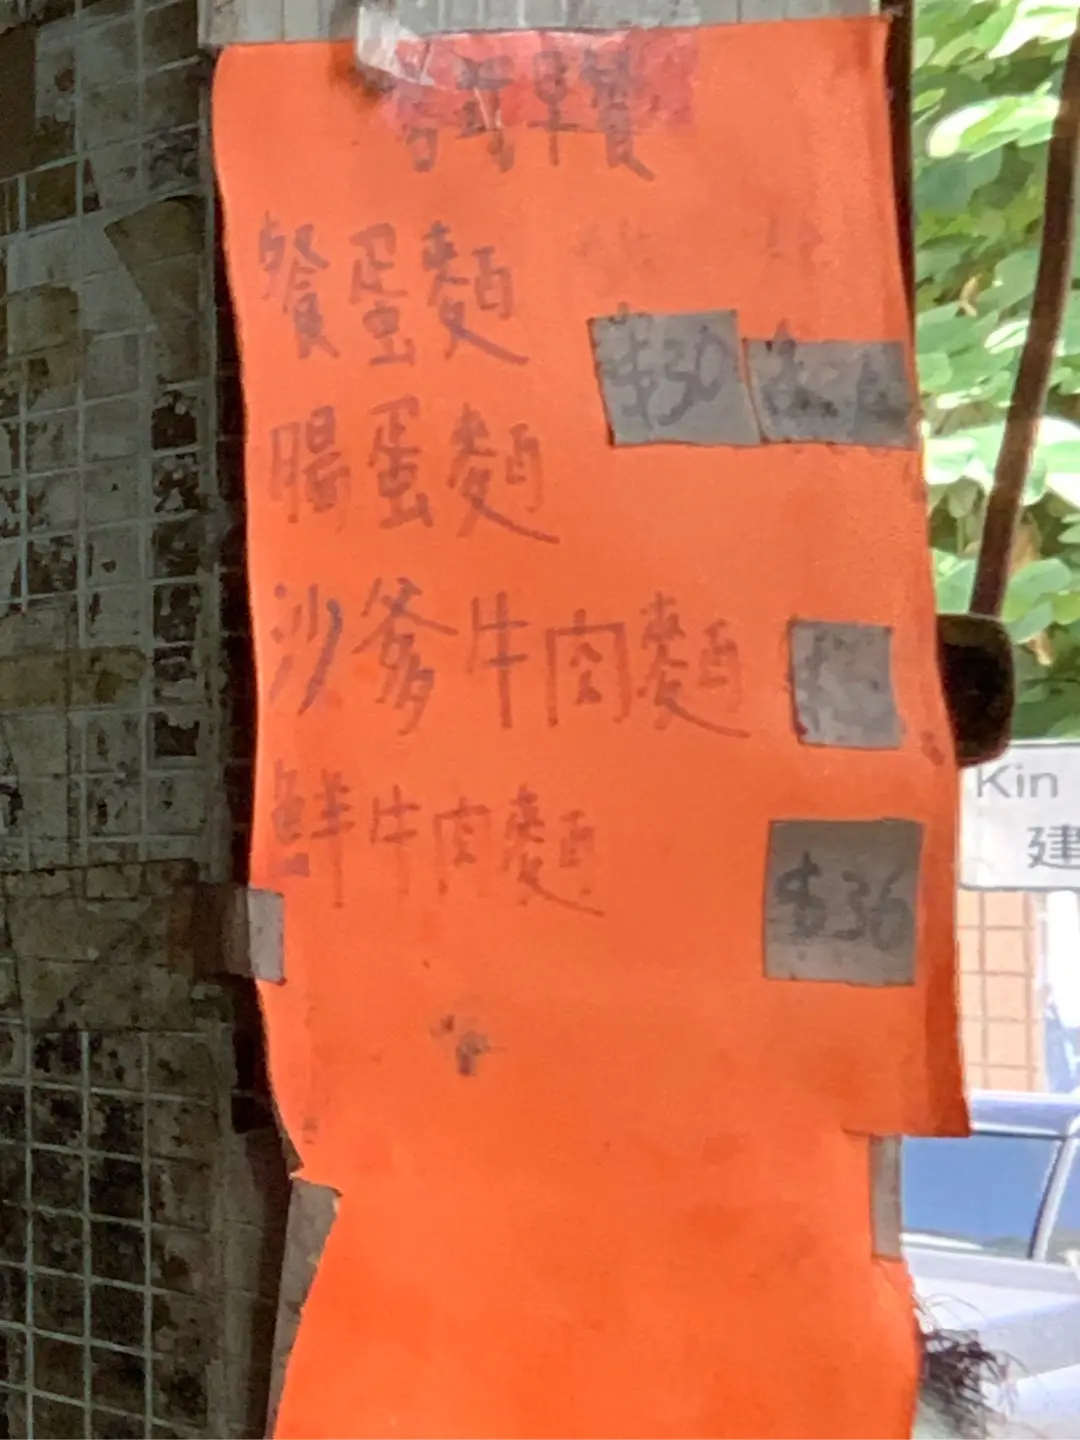 早餐
餐蛋麵
$30
腸蛋麵
沙爹牛肉麵
鮮牛肉麵
$36
Kin
建